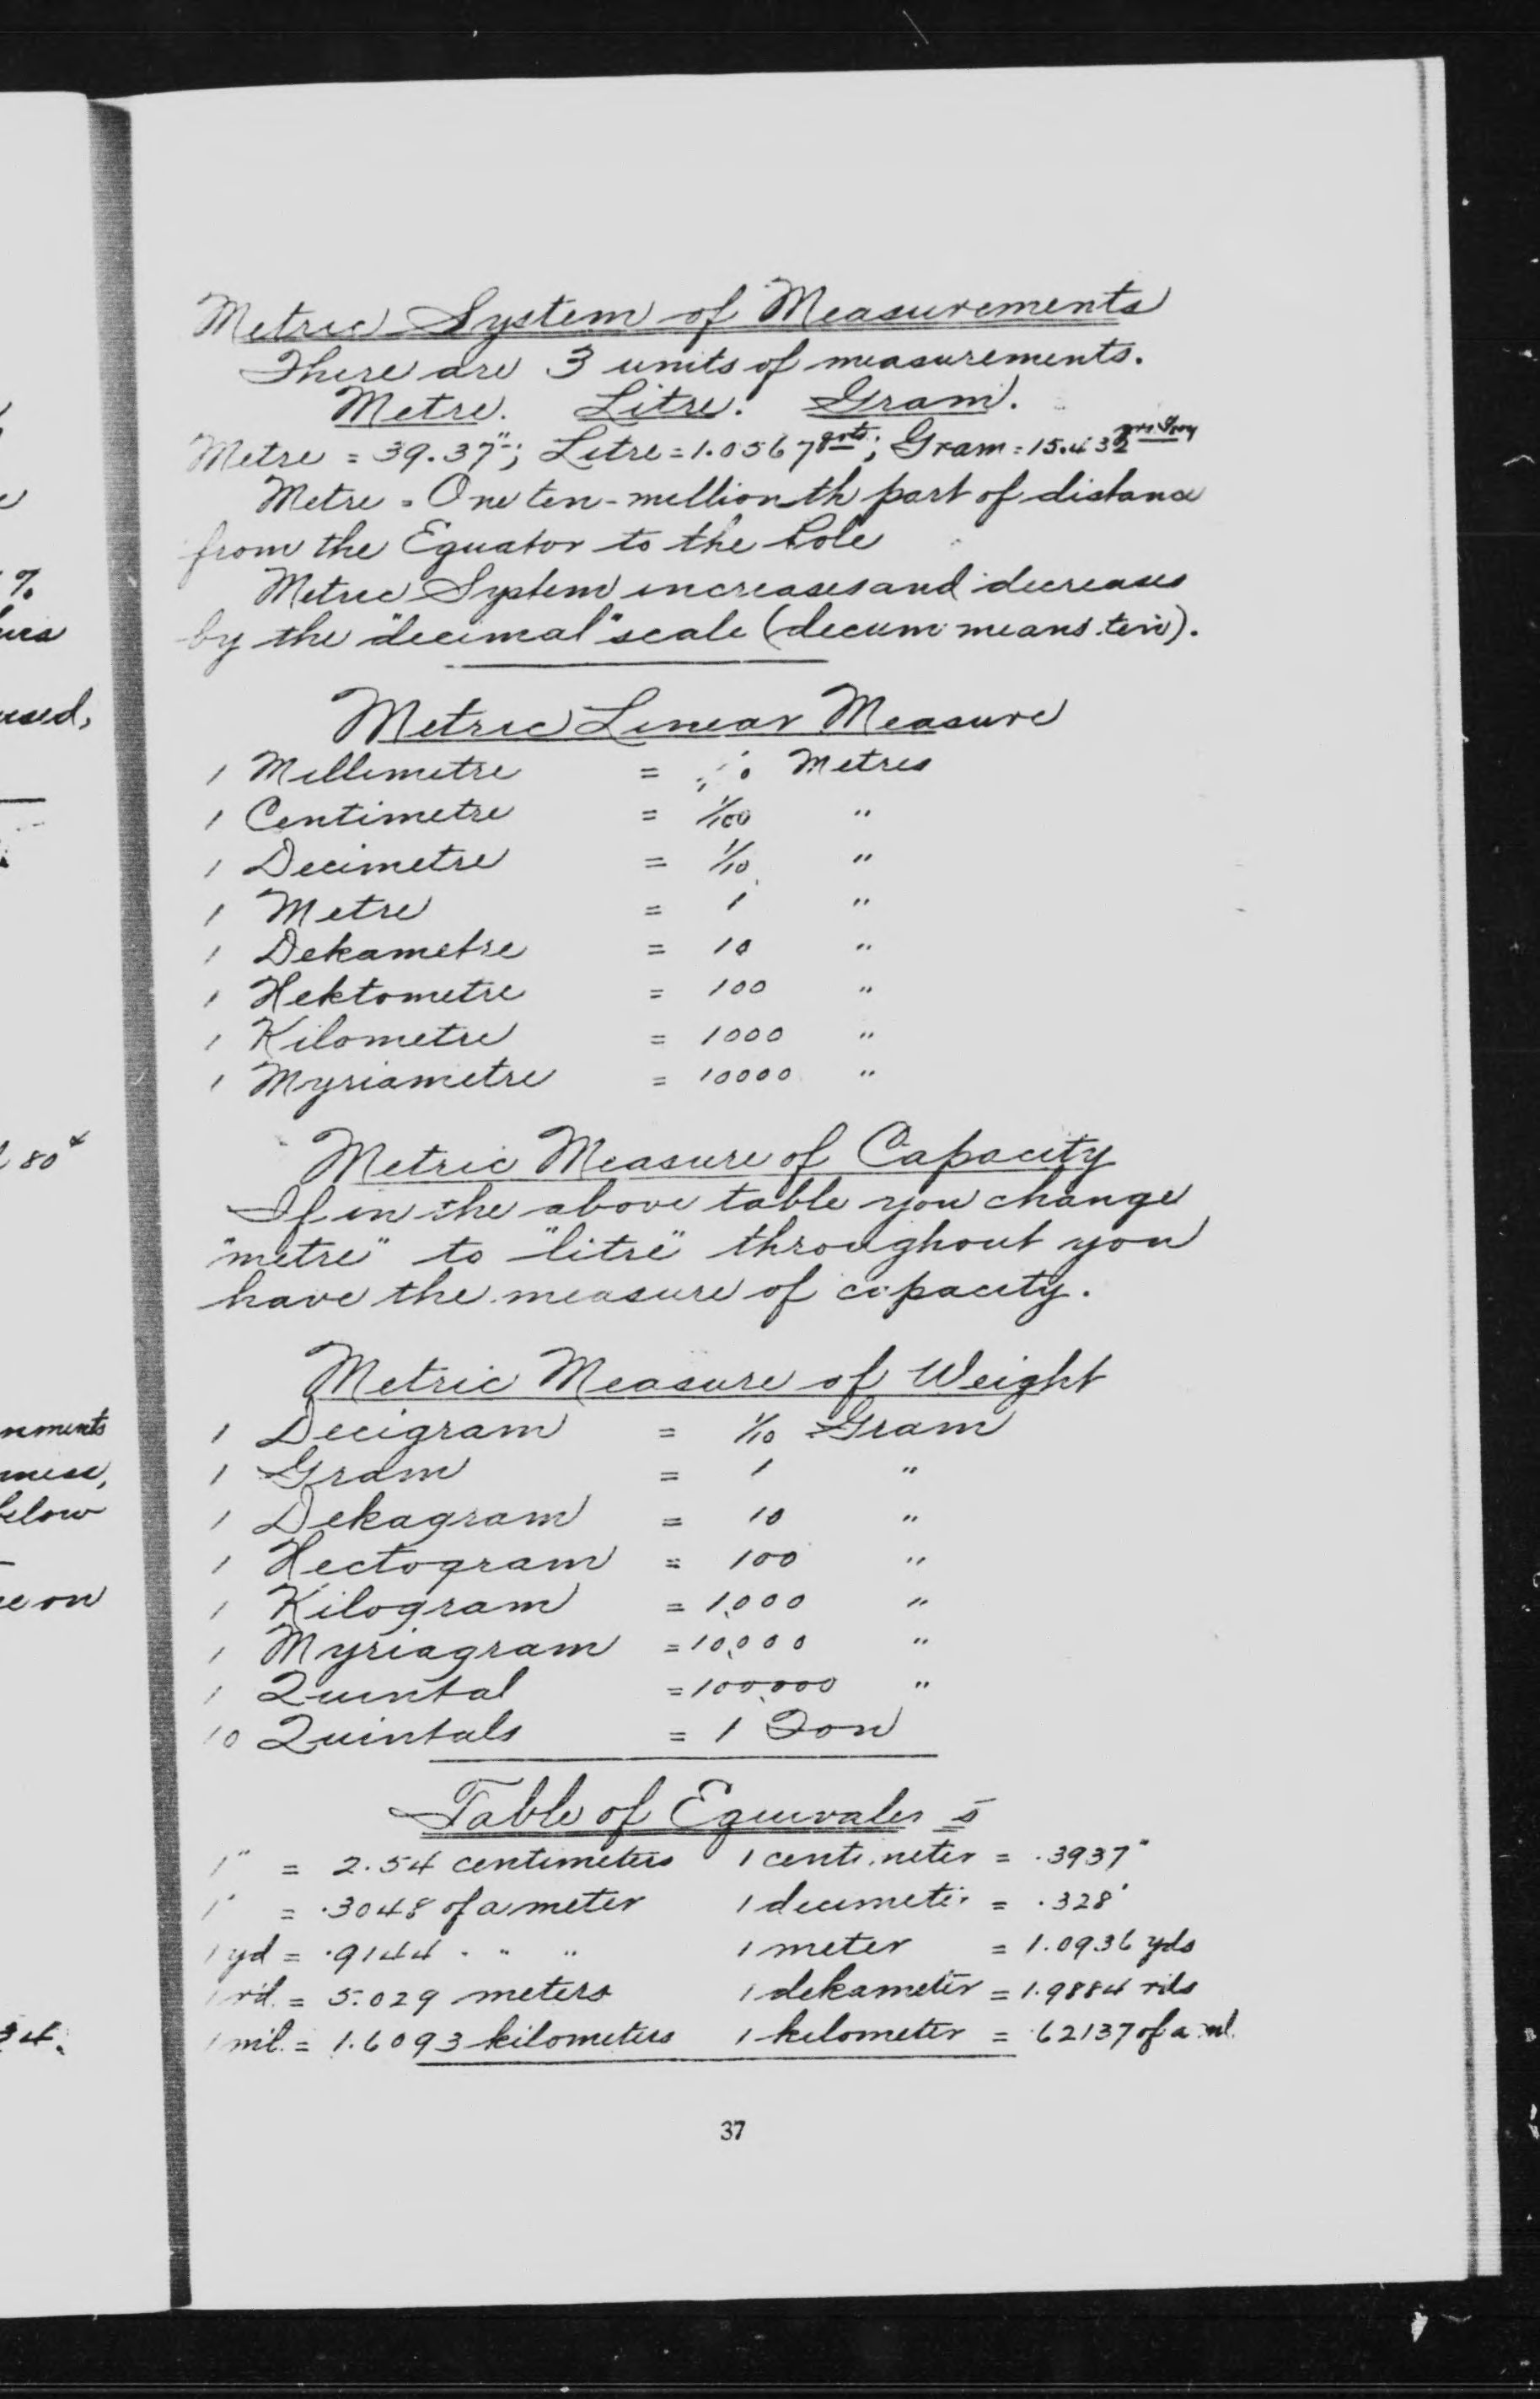 Metric System of Measurements
There are 3 units of measurements.
Metre. Litre. Gram.
Metre = 39.37"; Litre = 1.0567 qrts; Gram = 15.432 grs. Troy
Metre = One ten-millionth part of distance
from the Equator to the Pole
Metric System increases and decreases
by the "decimal" scale (decum means ten).
Metric Linear Measure
1 Millimetre = Metres
1 Centimetre = 1/100 "
1 Decimetre = 1/10 "
1 Metre = 1 "
1 Dekametre = 10 "
1 Hektometre = 100 "
1 Kilometre = 1000 "
1 Myriametre = 10000 "
Metric Measure of Capacity
If in the above table you change
"metre" to "litre" throughout you
have the measure of capacity.
Metric Measure of Weight
1 Decigram = 1/10 Gram
1 Gram = 1 "
1 Dekagram = 10 "
1 Hectogram = 100 "
1 Kilogram = 1,000 "
1 Myriagram = 10,000 "
1 Quintal = 100,000 "
10 Quintals = 1 Ton
Table of Equivalents
1" = 2.54 centimeters 1 centimeter = .3937"
1' = .3048 of a meter 1 decimeter = .328'
1 yd = .9144 " " " 1 meter = 1.0936 yds
1 rd. = 5.029 meters 1 dekameter = 1.9884 rds
1 mil. = 1.6093 kilometers 1 kilometer = .62137 of a ml.
37